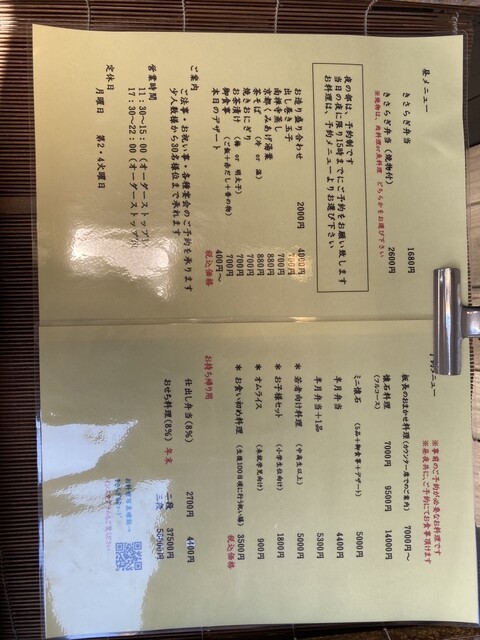 昼メニュー
きさらぎ弁当 1680円
きさらぎ弁当（焼物付） 2600円
※焼物は、肉料理or魚料理 どちらかをお選び下さい
夜の部は、予約制です
当日の夜に限り15時までにご予約をお願い致します
お料理は、予約メニューよりお選び下さい
お造り盛り合わせ 2000円 4000円
出し巻き玉子
南禅寺蒸し 700円
京都くみあげ湯葉 880円
茶そば （冷 or 温） 880円
焼きおにぎり 700円
お茶漬け （梅 or 明太子） 700円
御食事 （ご飯＋赤だし＋香の物） 700円
本日のデザート 400円～
税込価格
ご案内
ご法事・お祝い事・各種宴会のご予約を承ります
少人数様から30名様位まで承れます
営業時間
11:30～15:00（オーダーストップ
17:30～22:00（オーダーストップ
定休日
月曜日 第2・4火曜日
予約メニュー
※事前のご予約が必要なお料理です
※昼夜共に、ご予約にてお食事頂けます
板長のおまかせ料理（カウンター席でのご案内） 7000円～
懐石料理 7000円 9500円 14000円
（フルコース）
ミニ懐石 （5品＋御食事＋デザート） 5000円
半月弁当 4400円
半月弁当＋1品 5300円
＊ 若者向け料理 （中高生以上） 5000円
＊ お子様セット （小学生位向け） 1800円
＊ オムライス （未就学児向け） 900円
＊ お食い初め料理 （生後100日頃に行う祝い膳） 3500円
税込価格
お持ち帰り用
仕出し弁当（8％） 2700円 4400円
おせち料理（8％） 年末 二段 37500円
三段